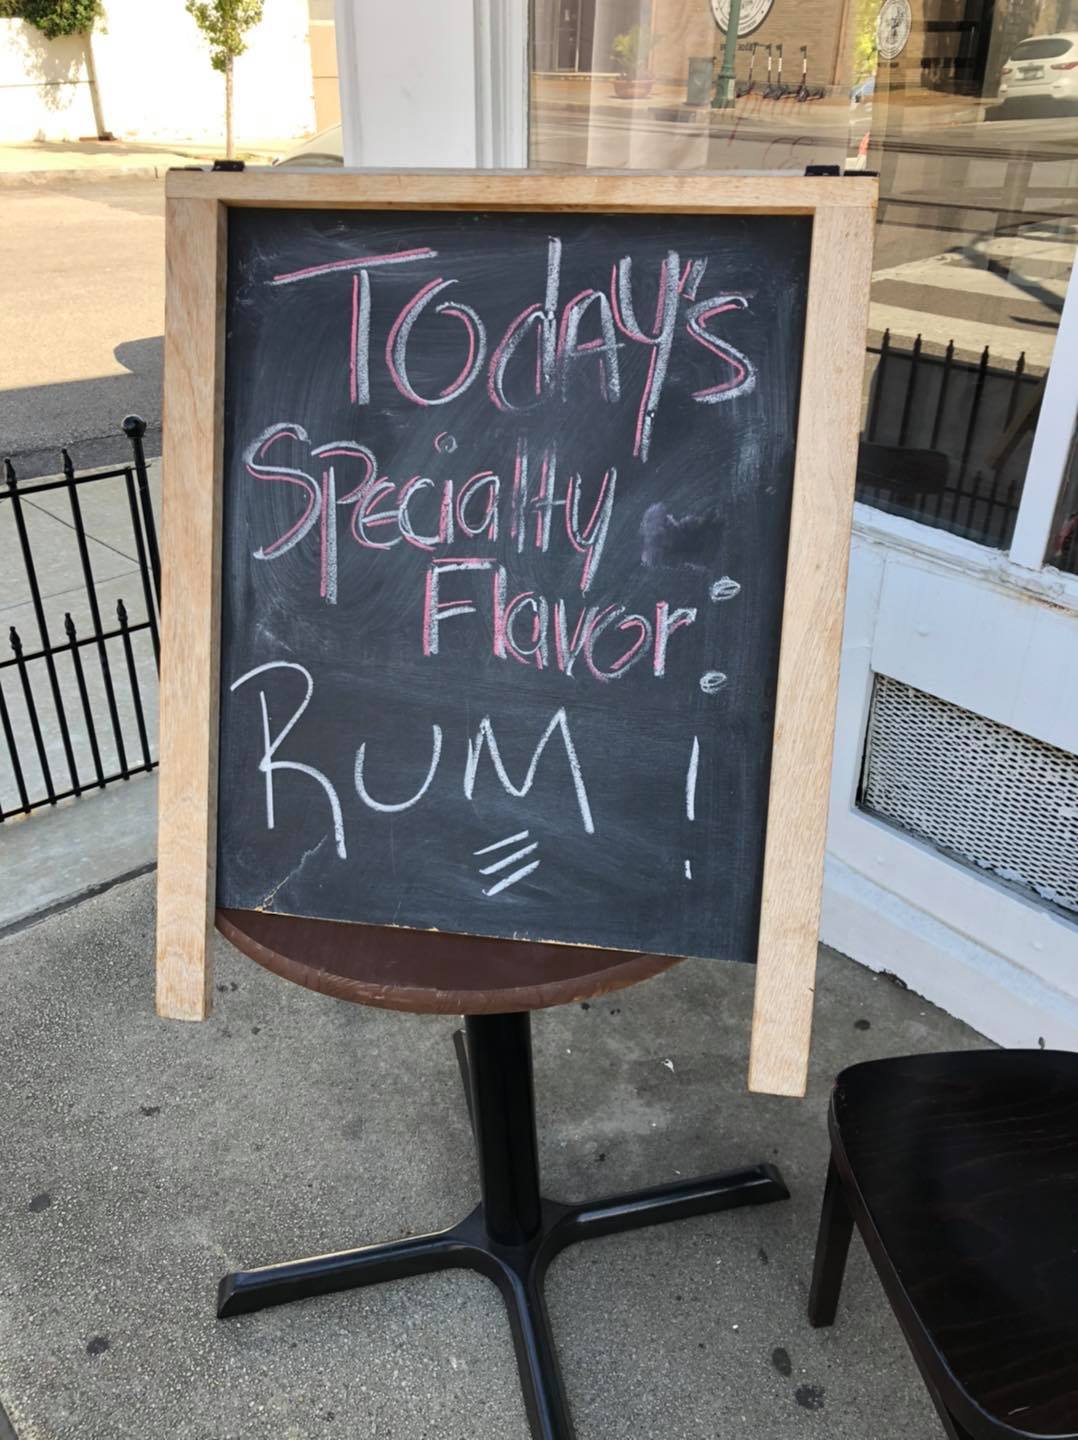 Today's
Specialty
Flavor:
RUM!